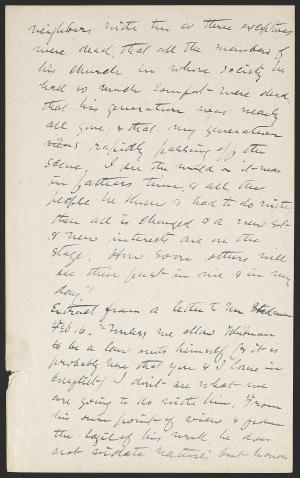 neighbors with two or three exceptions
were dead, that all the members of
his church in whose society he
had so much comfort were dead,
that his generation was nearly
all gone, & that my generation
was rapidly passing off the
scene. I see the world as it was
in father's time, & all the
people he knew & had to do with
then all is changed & a new set
& new interests are on the
stage. How soon others will
see their past in me & in my
day."
Extract from a letter to Mr Stedman
Feb 16. "Unless we allow Whitman
to be a law unto himself, for it is
probably here that you & I come in
English, I don't see what we
are going to do with him. "From
his own point of view & from
the logic of his work he does
not violate nature's but honors